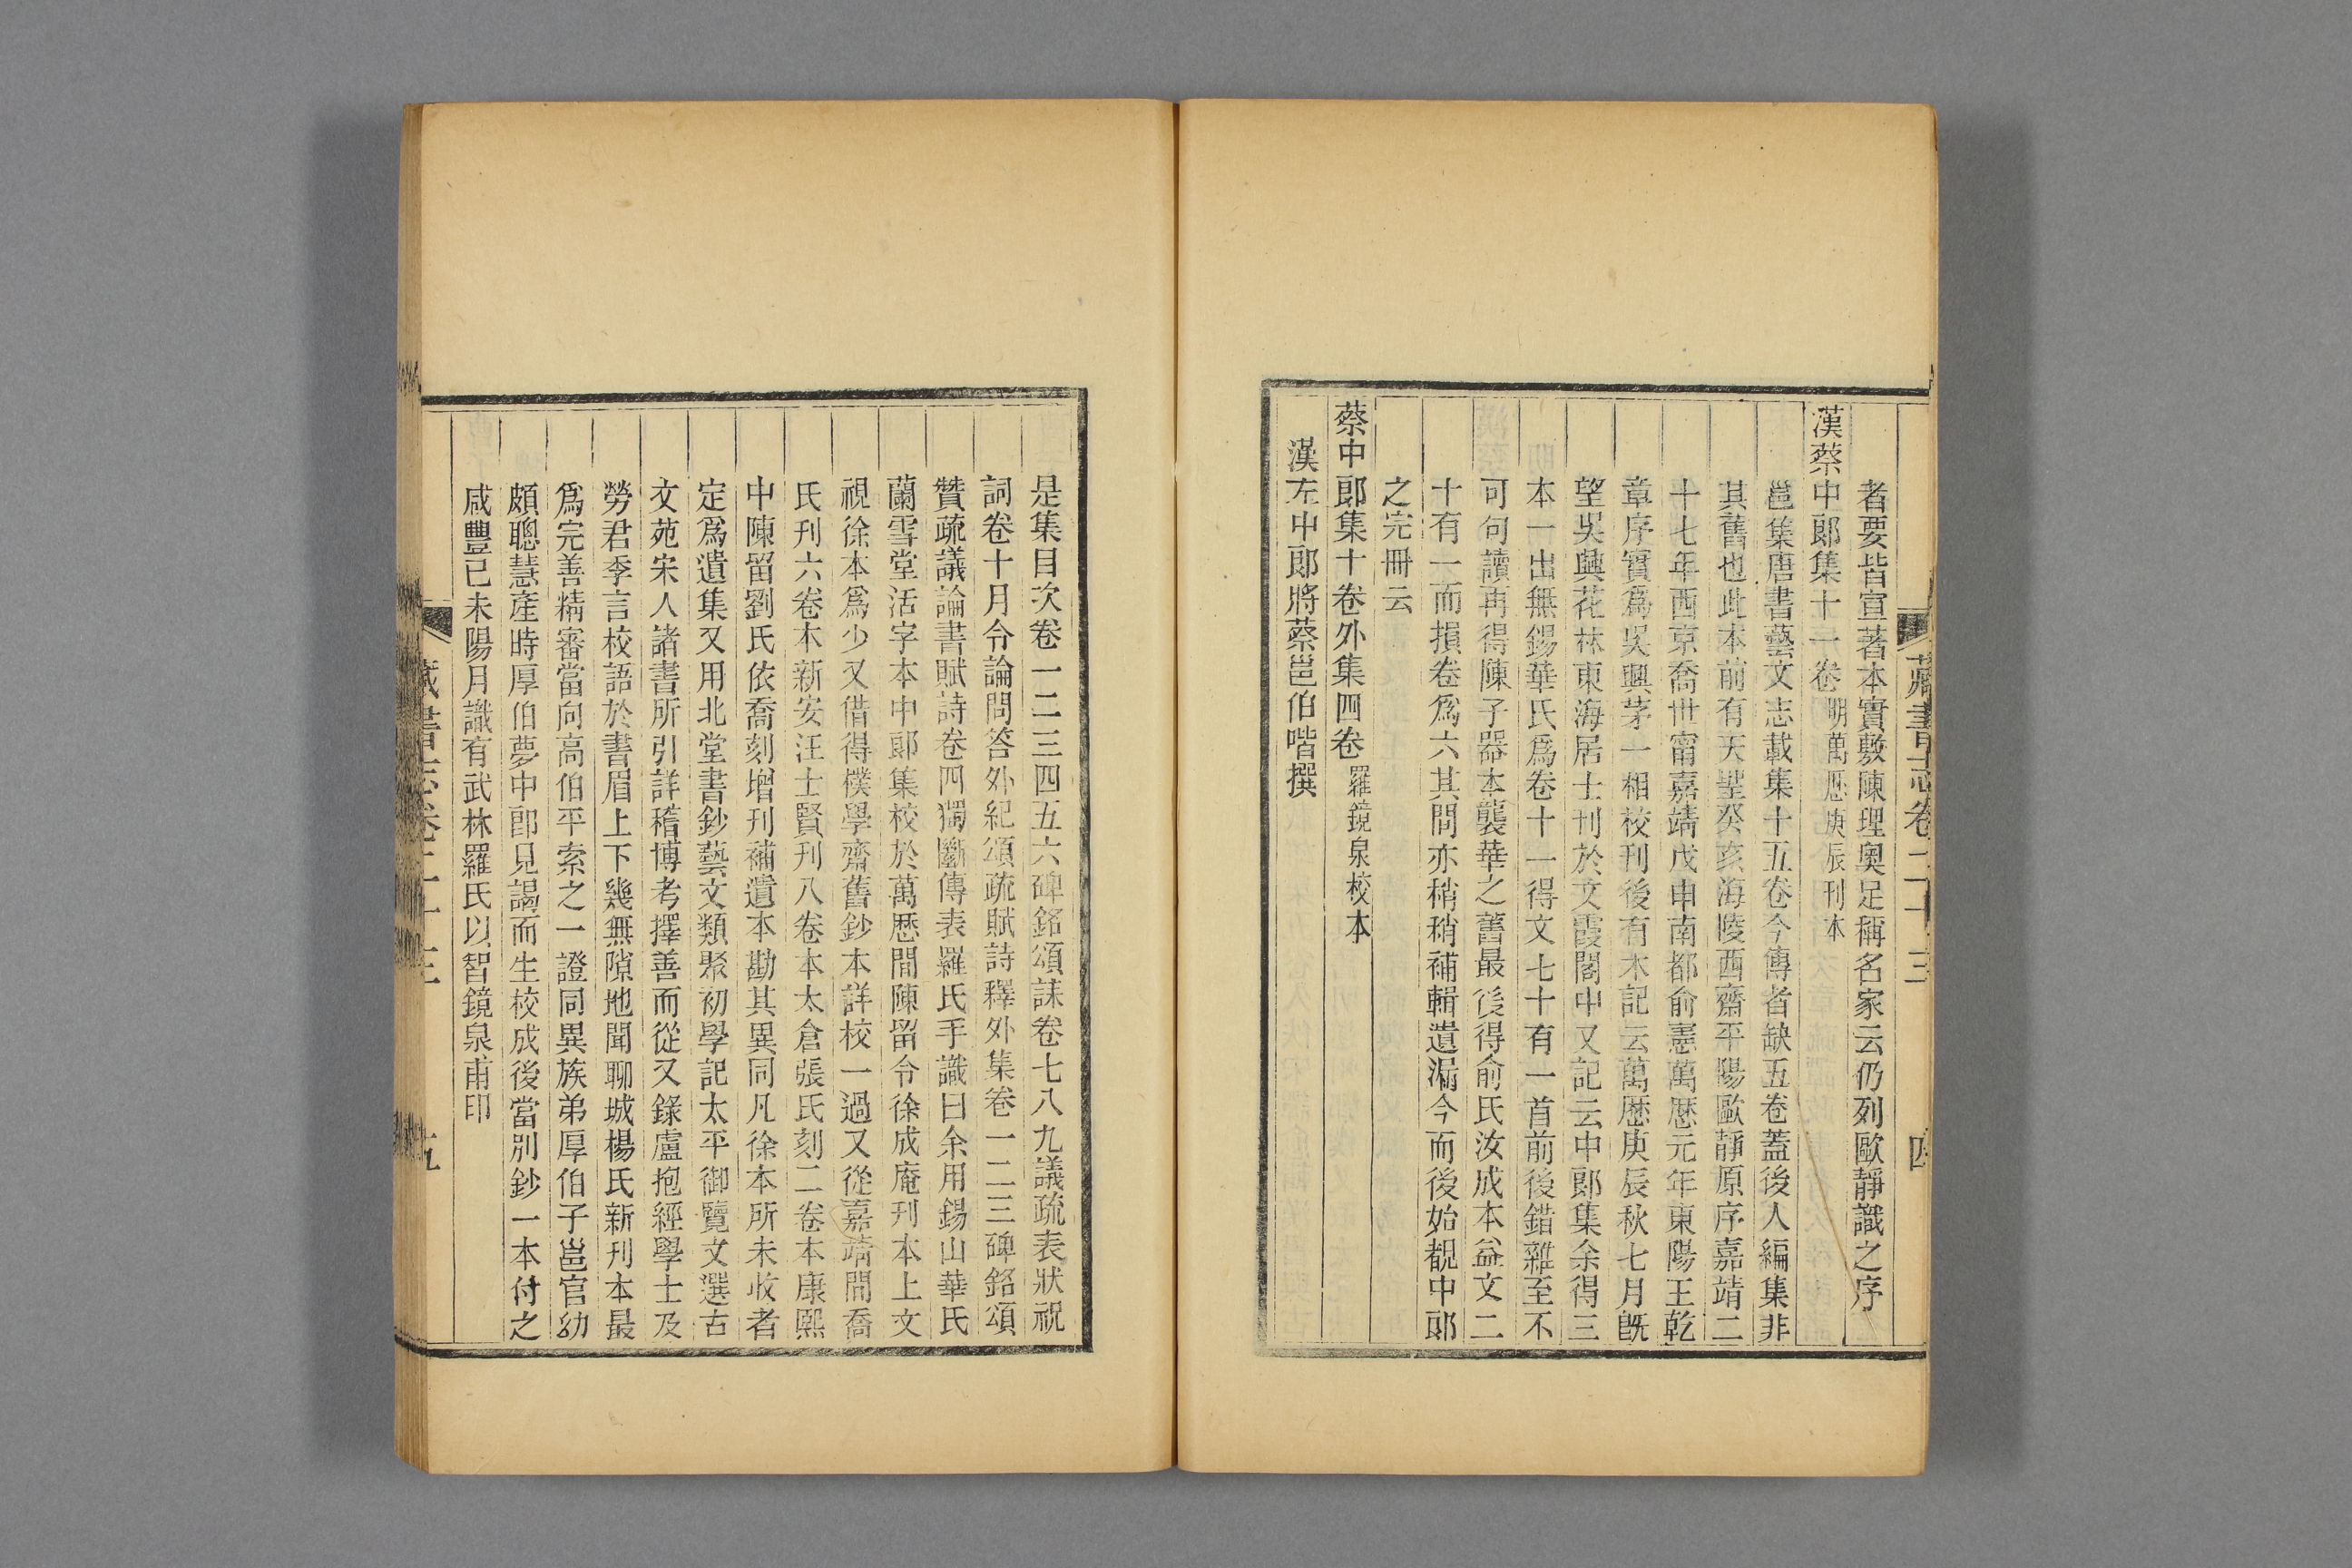 藏書志卷二十三 四
者要皆宣著本實敷陳理奧足稱名家云仍列歐靜識之序
漢蔡中郞集十一卷 明萬厯庚辰刊本
邕集唐書藝文志載集十五卷今傳者缺五卷蓋後人編集非
其舊也此本前有天聖癸亥海陵西齋平陽歐靜原序嘉靖二
十七年西京喬世甯嘉靖戊申南都俞憲萬厯元年東陽王乾
章序實爲吳興茅一相校刊後有木記云萬厯庚辰秋七月旣
望吳興花林東海居士刊於文霞閣中又記云中郞集余得三
本一出無錫華氏爲卷十一得文七十有一首前後錯雜至不
可句讀再得陳子器本襲華之舊最後得俞氏汝成本益文二
十有一而損卷爲六其間亦稍稍補輯遺漏今而後始覩中郞
之完冊云
蔡中郞集十卷外集四卷 羅鏡泉校本
漢左中郞將蔡邕伯喈撰
是集目次卷一二三四五六碑銘頌誄卷七八九議疏表狀祝
詞卷十月令論問答外紀頌疏賦詩釋外集卷一二三碑銘頌
贊疏議論書賦詩卷四獨斷傳表羅氏手識曰余用錫山華氏
蘭雪堂活字本中郞集校於萬厯間陳留令徐成庵刊本上文
視徐本爲少又借得樸學齋舊鈔本詳校一過又從嘉靖間喬
氏刊六卷本新安汪士賢刊八卷本太倉張氏刻二卷本康熙
中陳留劉氏依喬刻增刊補遺本勘其異同凡徐本所未收者
定爲遺集又用北堂書鈔藝文類聚初學記太平御覽文選古
文苑宋人諸書所引詳稽博考擇善而從又錄盧抱經學士及
勞君季言校語於書眉上下幾無隙地聞聊城楊氏新刊本最
爲完善精審當向高伯平索之一證同異族弟厚伯子邕官幼
頗聰慧產時厚伯夢中郞見謁而生校成後當別鈔一本付之
咸豐己未陽月識有武林羅氏以智鏡泉甫印
藏書志卷二十三 五